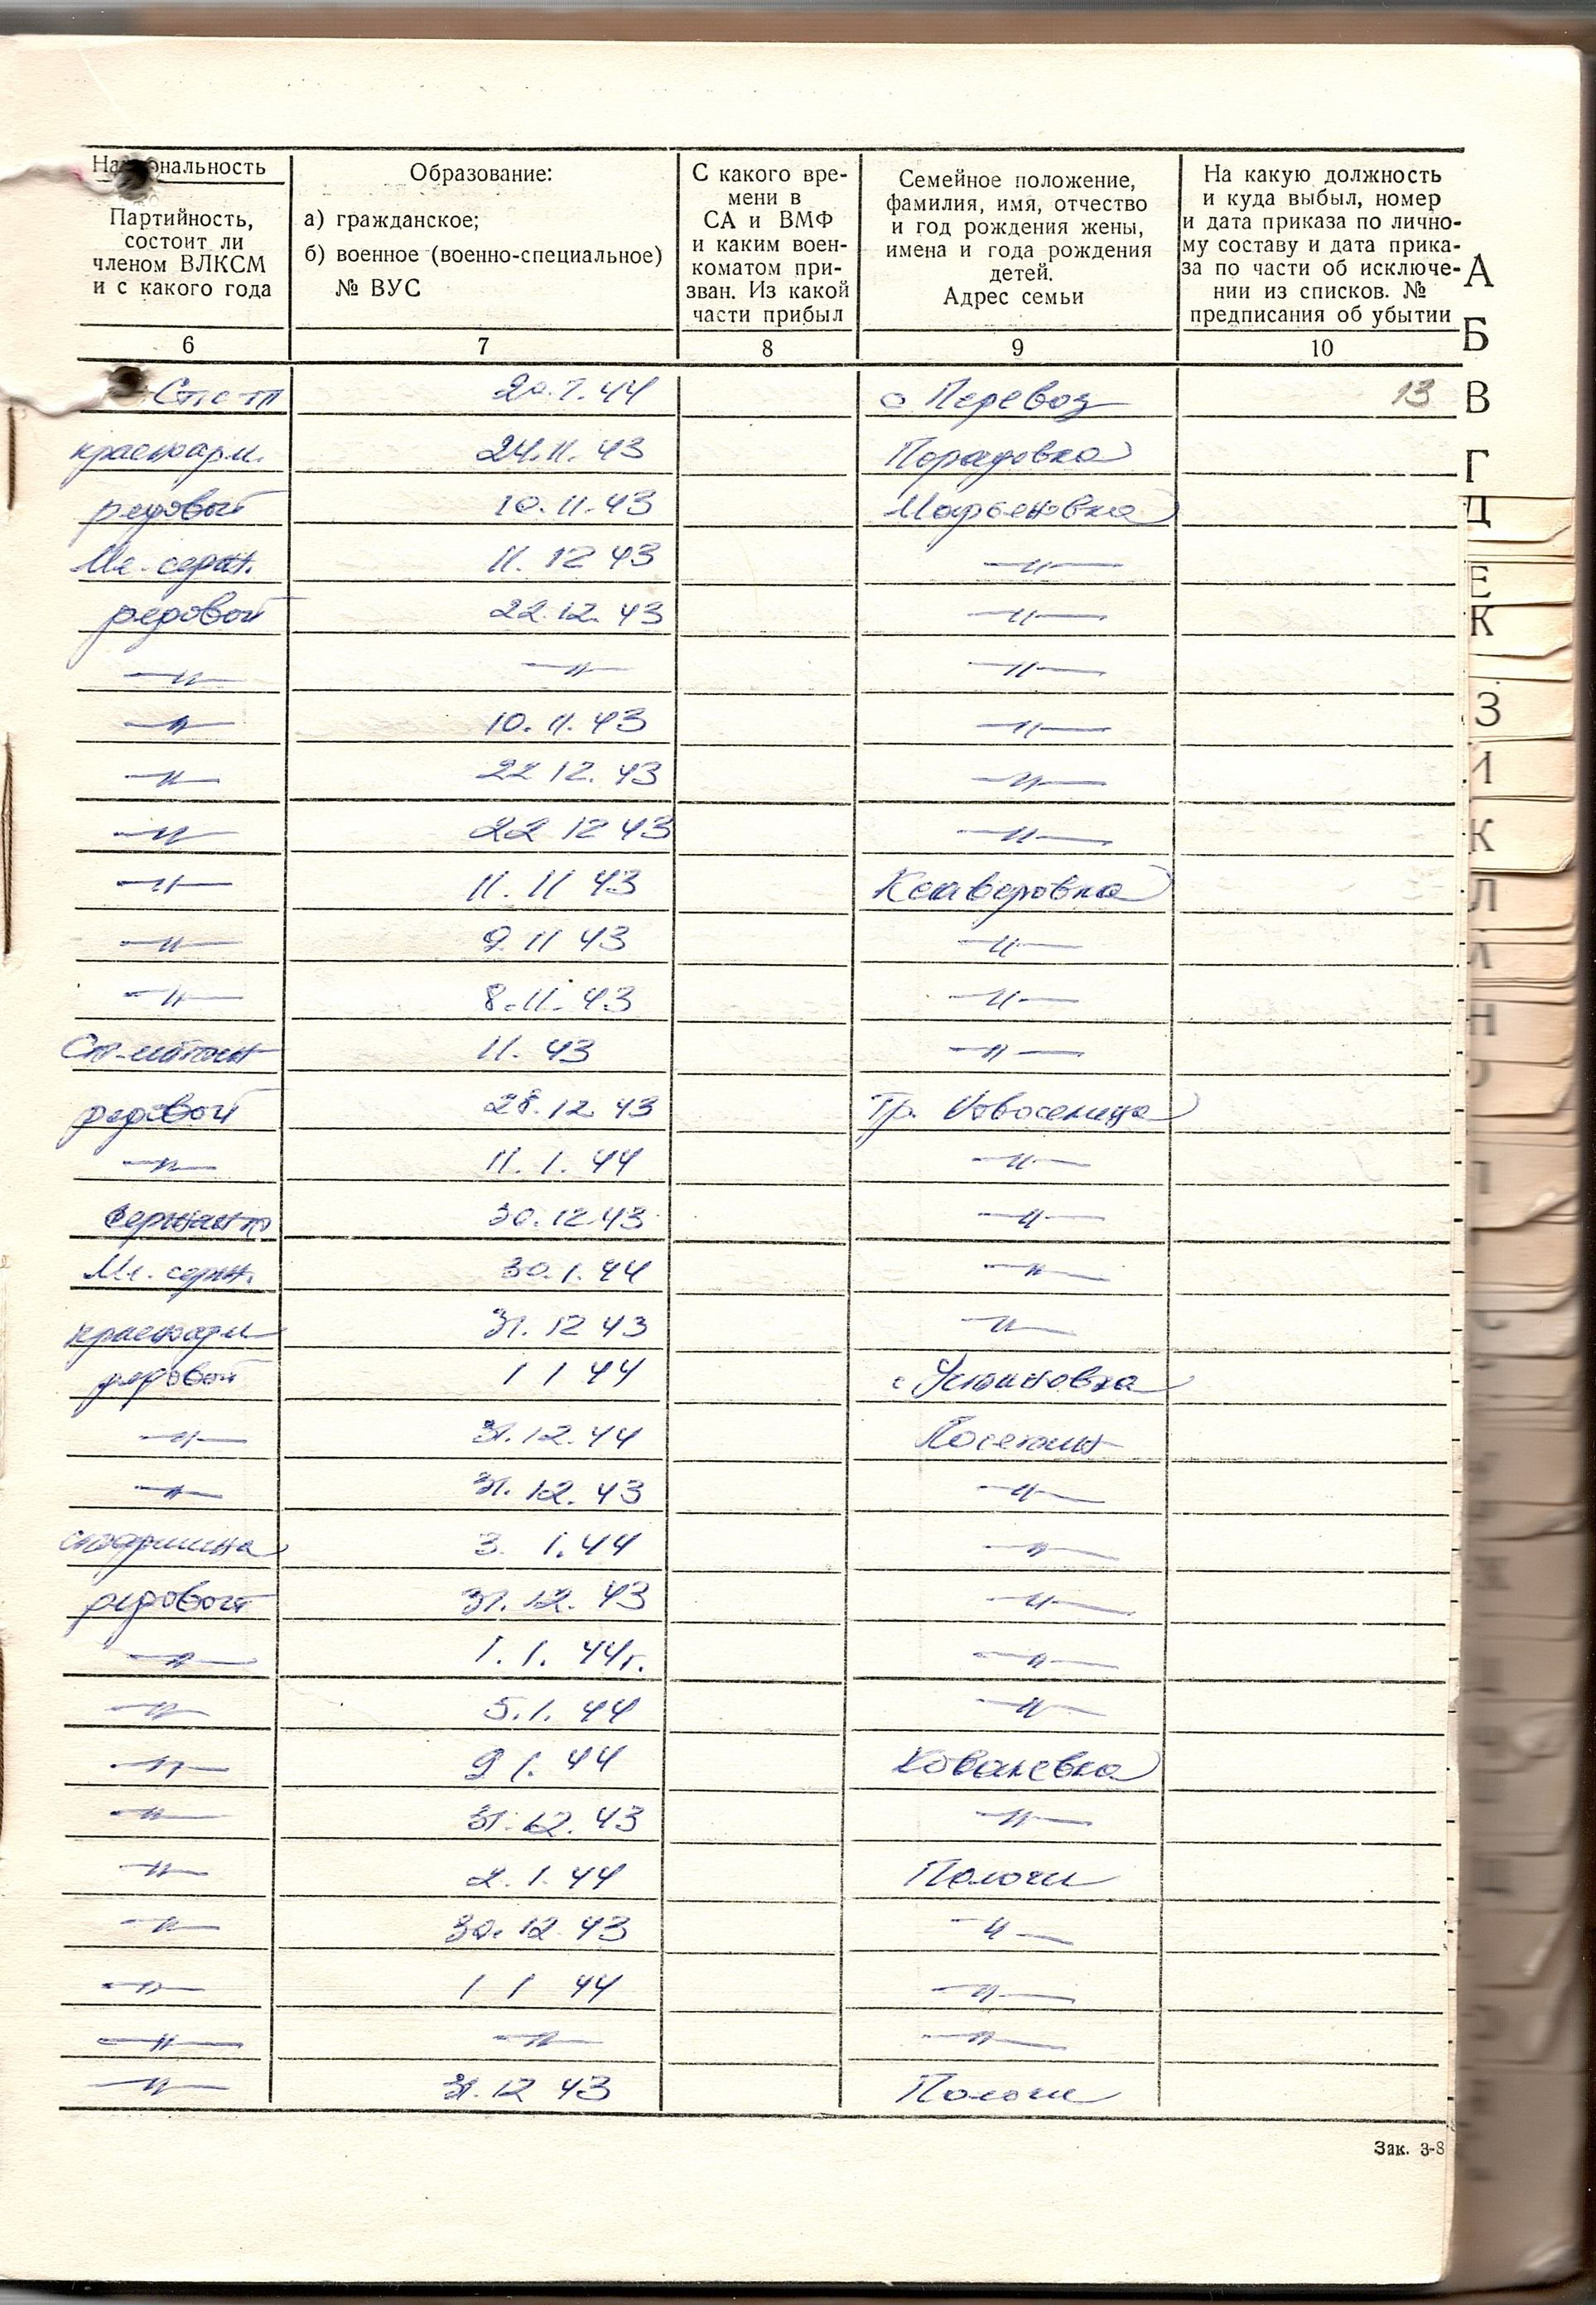 Национальность
Партийность,
состоит ли
членом ВЛКСМ
и с какого года
Образование:
а) гражданское;
б) военное (военно-специальное)
№ ВУС
С какого вре-
мени в
СА и ВМФ
и каким воен-
коматом при-
зван. Из какой
части прибыл
Семейное положение,
фамилия, имя, отчество
и год рождения жены,
имена и года рождения
детей.
Адрес семьи
На какую должность
и куда выбыл, номер
и дата приказа по лично-
му составу и дата прика-
за по части об исключе-
нии из списков. №
предписания об убытии
6 7 8 9 10
20.7.44 с Перевоз 13
красноарм. 24.11.43 Порадовка
редовой 10.11.43 Марьеновка
Мл. серж. 11.12 43 —"—
редовой 22.12.43 —"—
—"— —"— —"—
—"— 10.11.43 —"—
—"— 22 12.43 —"—
—"— 22 12 43 —"—
—"— 11.11 43 Ксаверовка
—"— 9 11 43 —"—
—"— 8.11.43 —"—
11.43 —"—
редовой 28.12 43 Гр. Новоселица
—"— 11.1.44 —"—
сержант 30.12.43 —"—
Мл. серж. 30.1.44 —"—
красноарм 31.12 43 —"—
редовой 1 1 44 с Устиновка
—"— 31.12.44
—"— 31.12.43 —"—
старшина 3. 1.44 —"—
редовой 31.12.43 —"—
—"— 1.1.44г. —"—
—"— 5.1.44 —"—
—"— 9 1.44 Ковалевка
—"— 31.12.43 —"—
—"— 2.1.44 Пологи
—"— 30.12 43 —"—
—"— 1 1 44 —"—
—"— —"— —"—
—"— 31.12 43 Пологи
Зак. 3-8
А
Б
В
Г
Д
Е
К
З
И
К
Л
Н